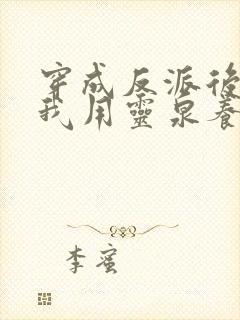 穿成反派後
我用靈泉養
李蜜